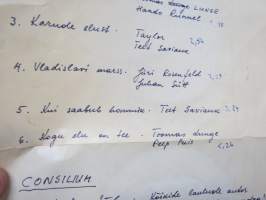 Hando Runnel
3. Karude elust. Taylor
Teet Saviauk
4. Vladislavi marss. Jüri Rosenfeld
Juhan Sütt
5. Kui saabub hommik. Teet Saviauk
6. Kogu elu on tee. Toomas Lunge
Peep Puis
CONSILIUM
laulude autor